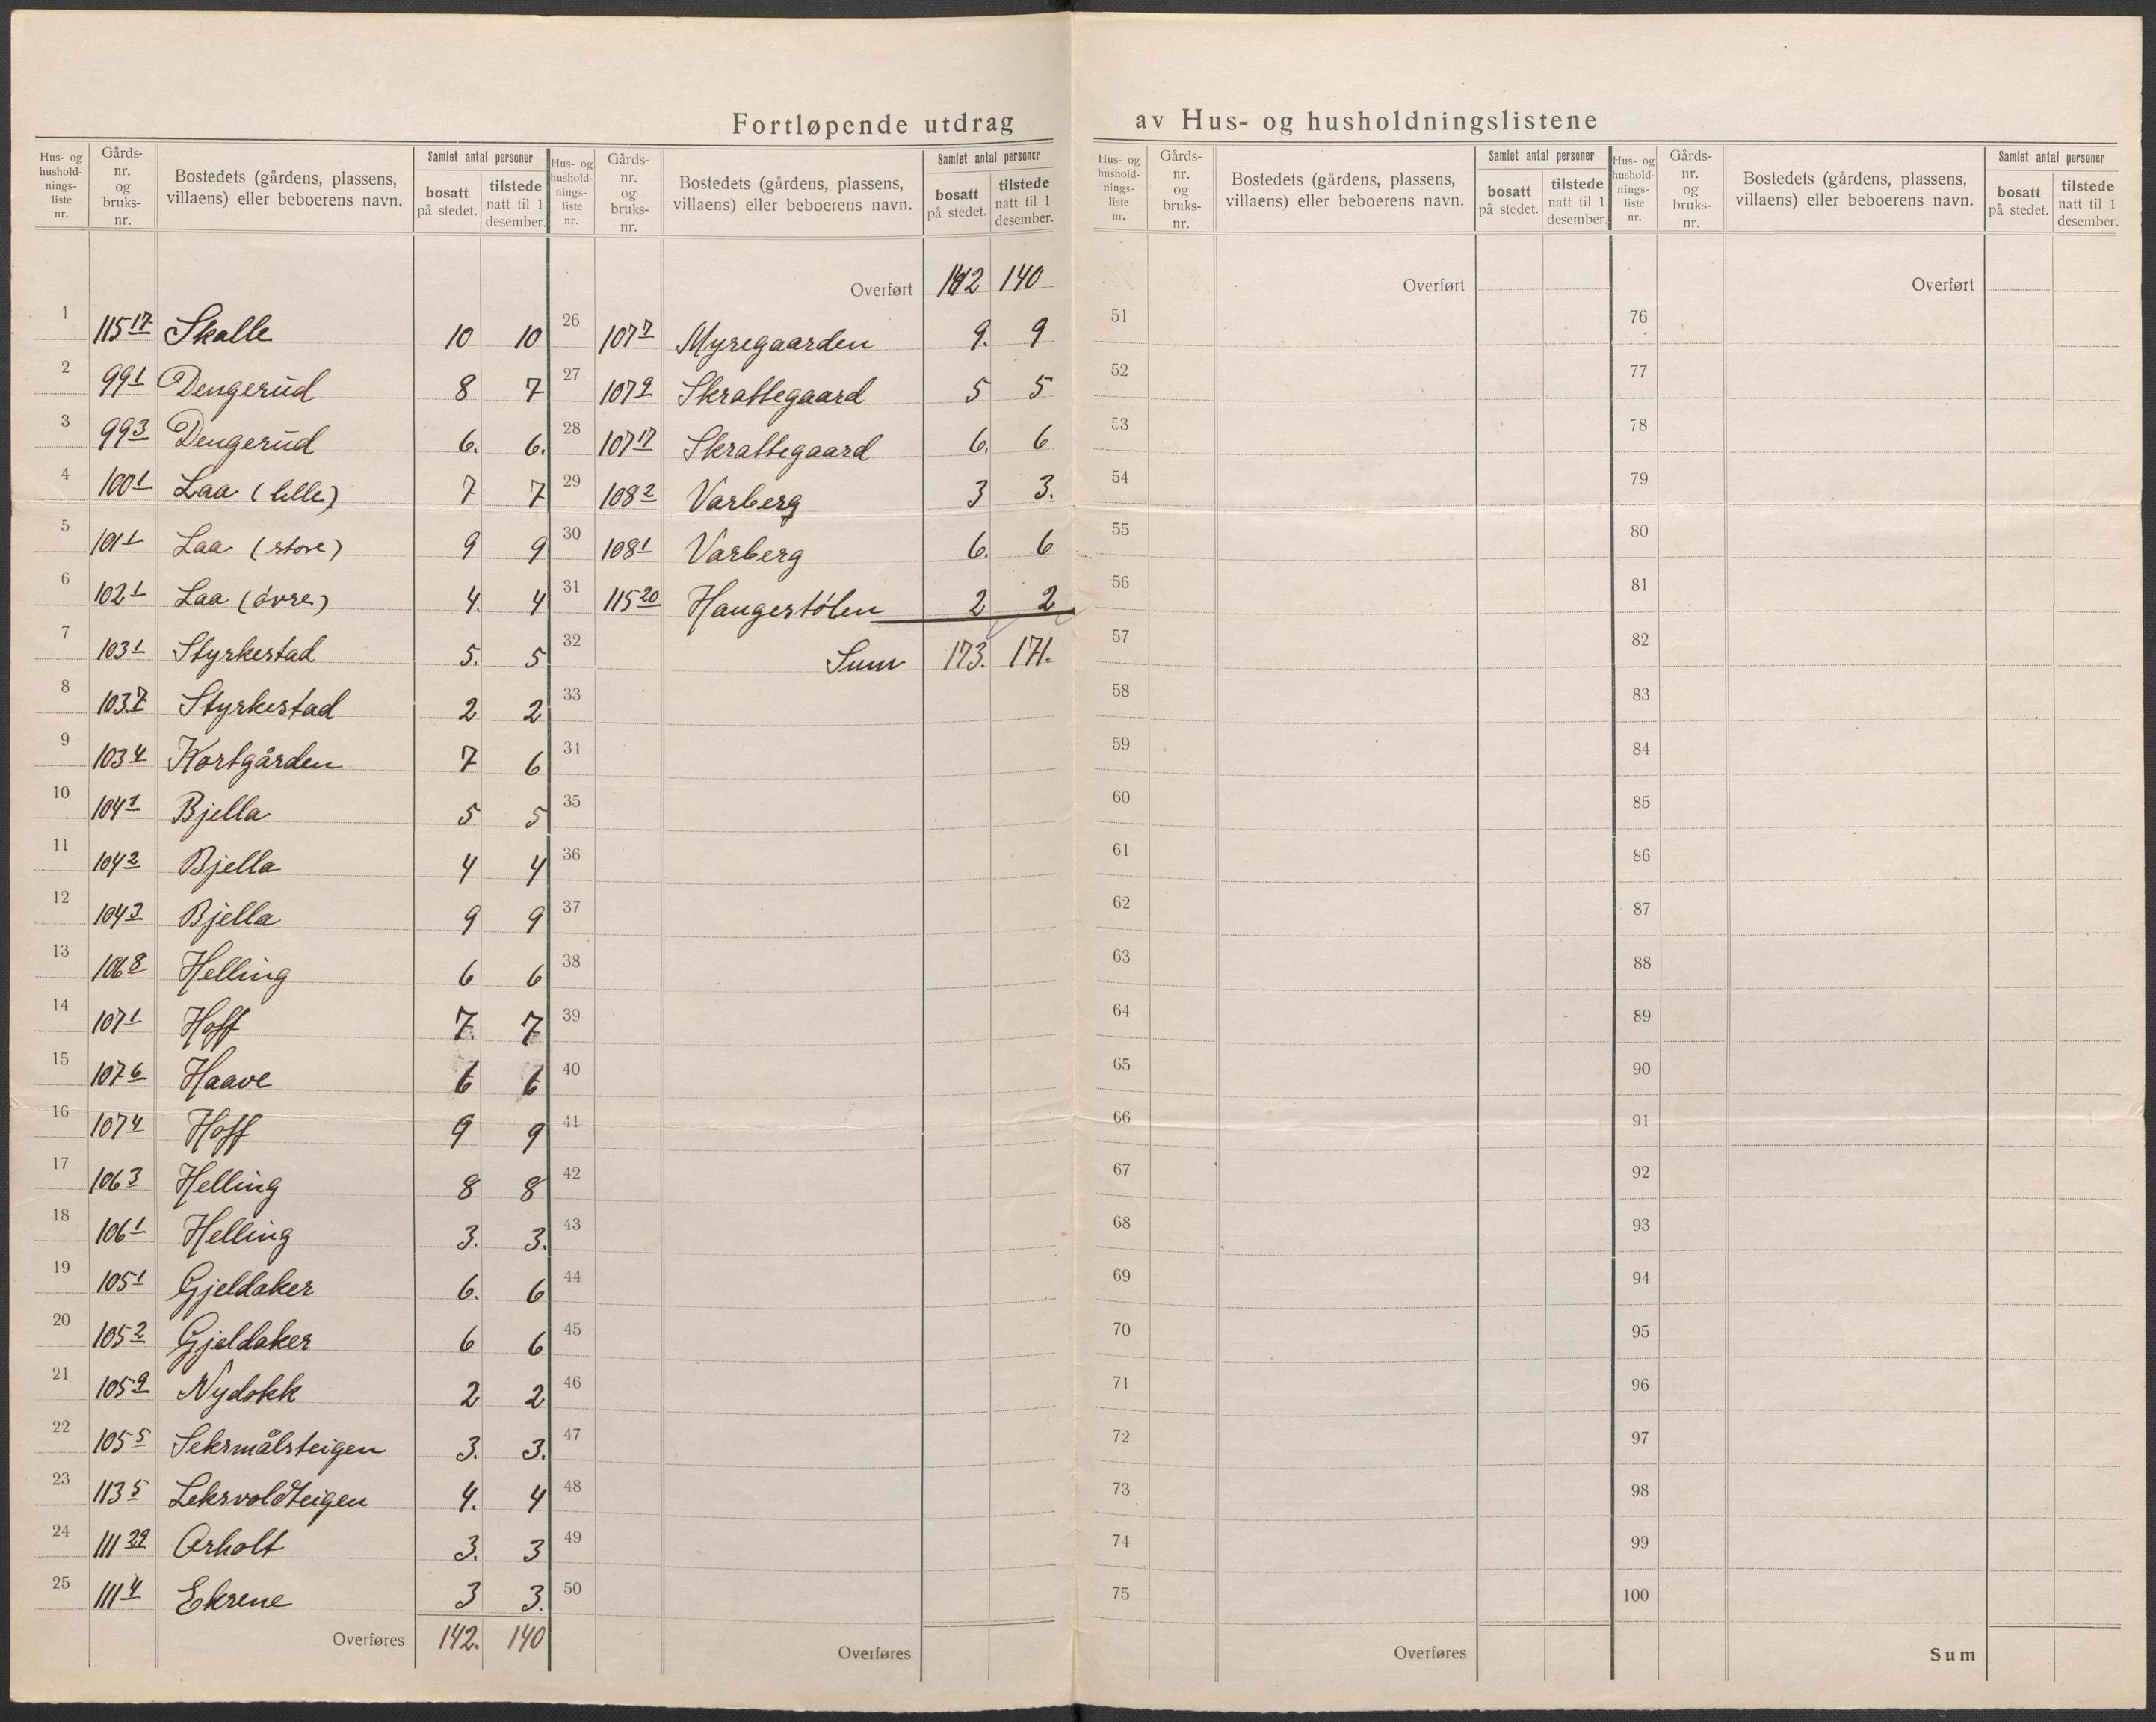 Fortløpende utdrag av Hus- og husholdningslistene
Hus- og husholdningsliste nr. | Gårds-nr. og bruks-nr. | Bostedets (gårdens, plassens, villaens) eller beboerens navn. | Samlet antal personer | bosatt på stedet. | tilstede natt til 1 desember.
1 115 17 Skalle 10 10
2 99 1 Dengerud 8 7
3 99 3 Dengerud 6. 6.
4 100 1 Laa (lille) 7 7
5 101 1 Laa (store) 9 9
6 102 1 Laa (øvre) 4. 4
7 103 1 Styrkestad 5. 5
8 103.7 Styrkestad 2 2
9 103 4 Kortgården 7 6
10 104 1 Bjella 5 5
11 104 2 Bjella 4 4
12 104 3 Bjella 9 9
13 106 8 Helling 6 6
14 107 1 Hoff 7. 7
15 107 6 Haave 6 6
16 107 4 Hoff 9 9
17 106 3 Helling 8 8
18 106 1 Helling 3. 3.
19 105 1 Gjeldaker 6. 6
20 105 2 Gjeldaker 6 6
21 105 9 Nydokk 2 2
22 105 5 Seksmålsteigen 3. 3.
23 113 5 Leksvoldteigen 4. 4
24 111 29 Ørholt 3. 3
25 111 4 Ekrene 3 3.
Overføres 142. 140
Hus- og husholdningsliste nr. | Gårds-nr. og bruks-nr. | Bostedets (gårdens, plassens, villaens) eller beboerens navn. | Samlet antal personer | bosatt på stedet. | tilstede natt til 1 desember.
Overført 142 140
26 107 7 Myregaarden 9. 9
27 107 9 Skrattegaard 5 5
28 107 17 Skrattegaard 6. 6
29 108 2 Varberg 3 3.
30 108 1 Varberg 6. 6
31 115 20 Haugestølen 2 2
32 Sum 173. 171.
33
31
35
36
37
38
39
40
41
42
43
44
45
46
47
48
49
50
Overføres
Hus- og husholdningsliste nr. | Gårds-nr. og bruks-nr. | Bostedets (gårdens, plassens, villaens) eller beboerens navn. | Samlet antal personer | bosatt på stedet. | tilstede natt til 1 desember.
Overført
51
52
53
54
55
56
57
58
59
60
61
62
63
64
65
66
67
68
69
70
71
72
73
74
75
Overføres
Hus- og husholdningsliste nr. | Gårds-nr. og bruks-nr. | Bostedets (gårdens, plassens, villaens) eller beboerens navn. | Samlet antal personer | bosatt på stedet. | tilstede natt til 1 desember.
Overført
76
77
78
79
80
81
82
83
84
85
86
87
88
89
90
91
92
93
94
95
96
97
98
99
100
Sum